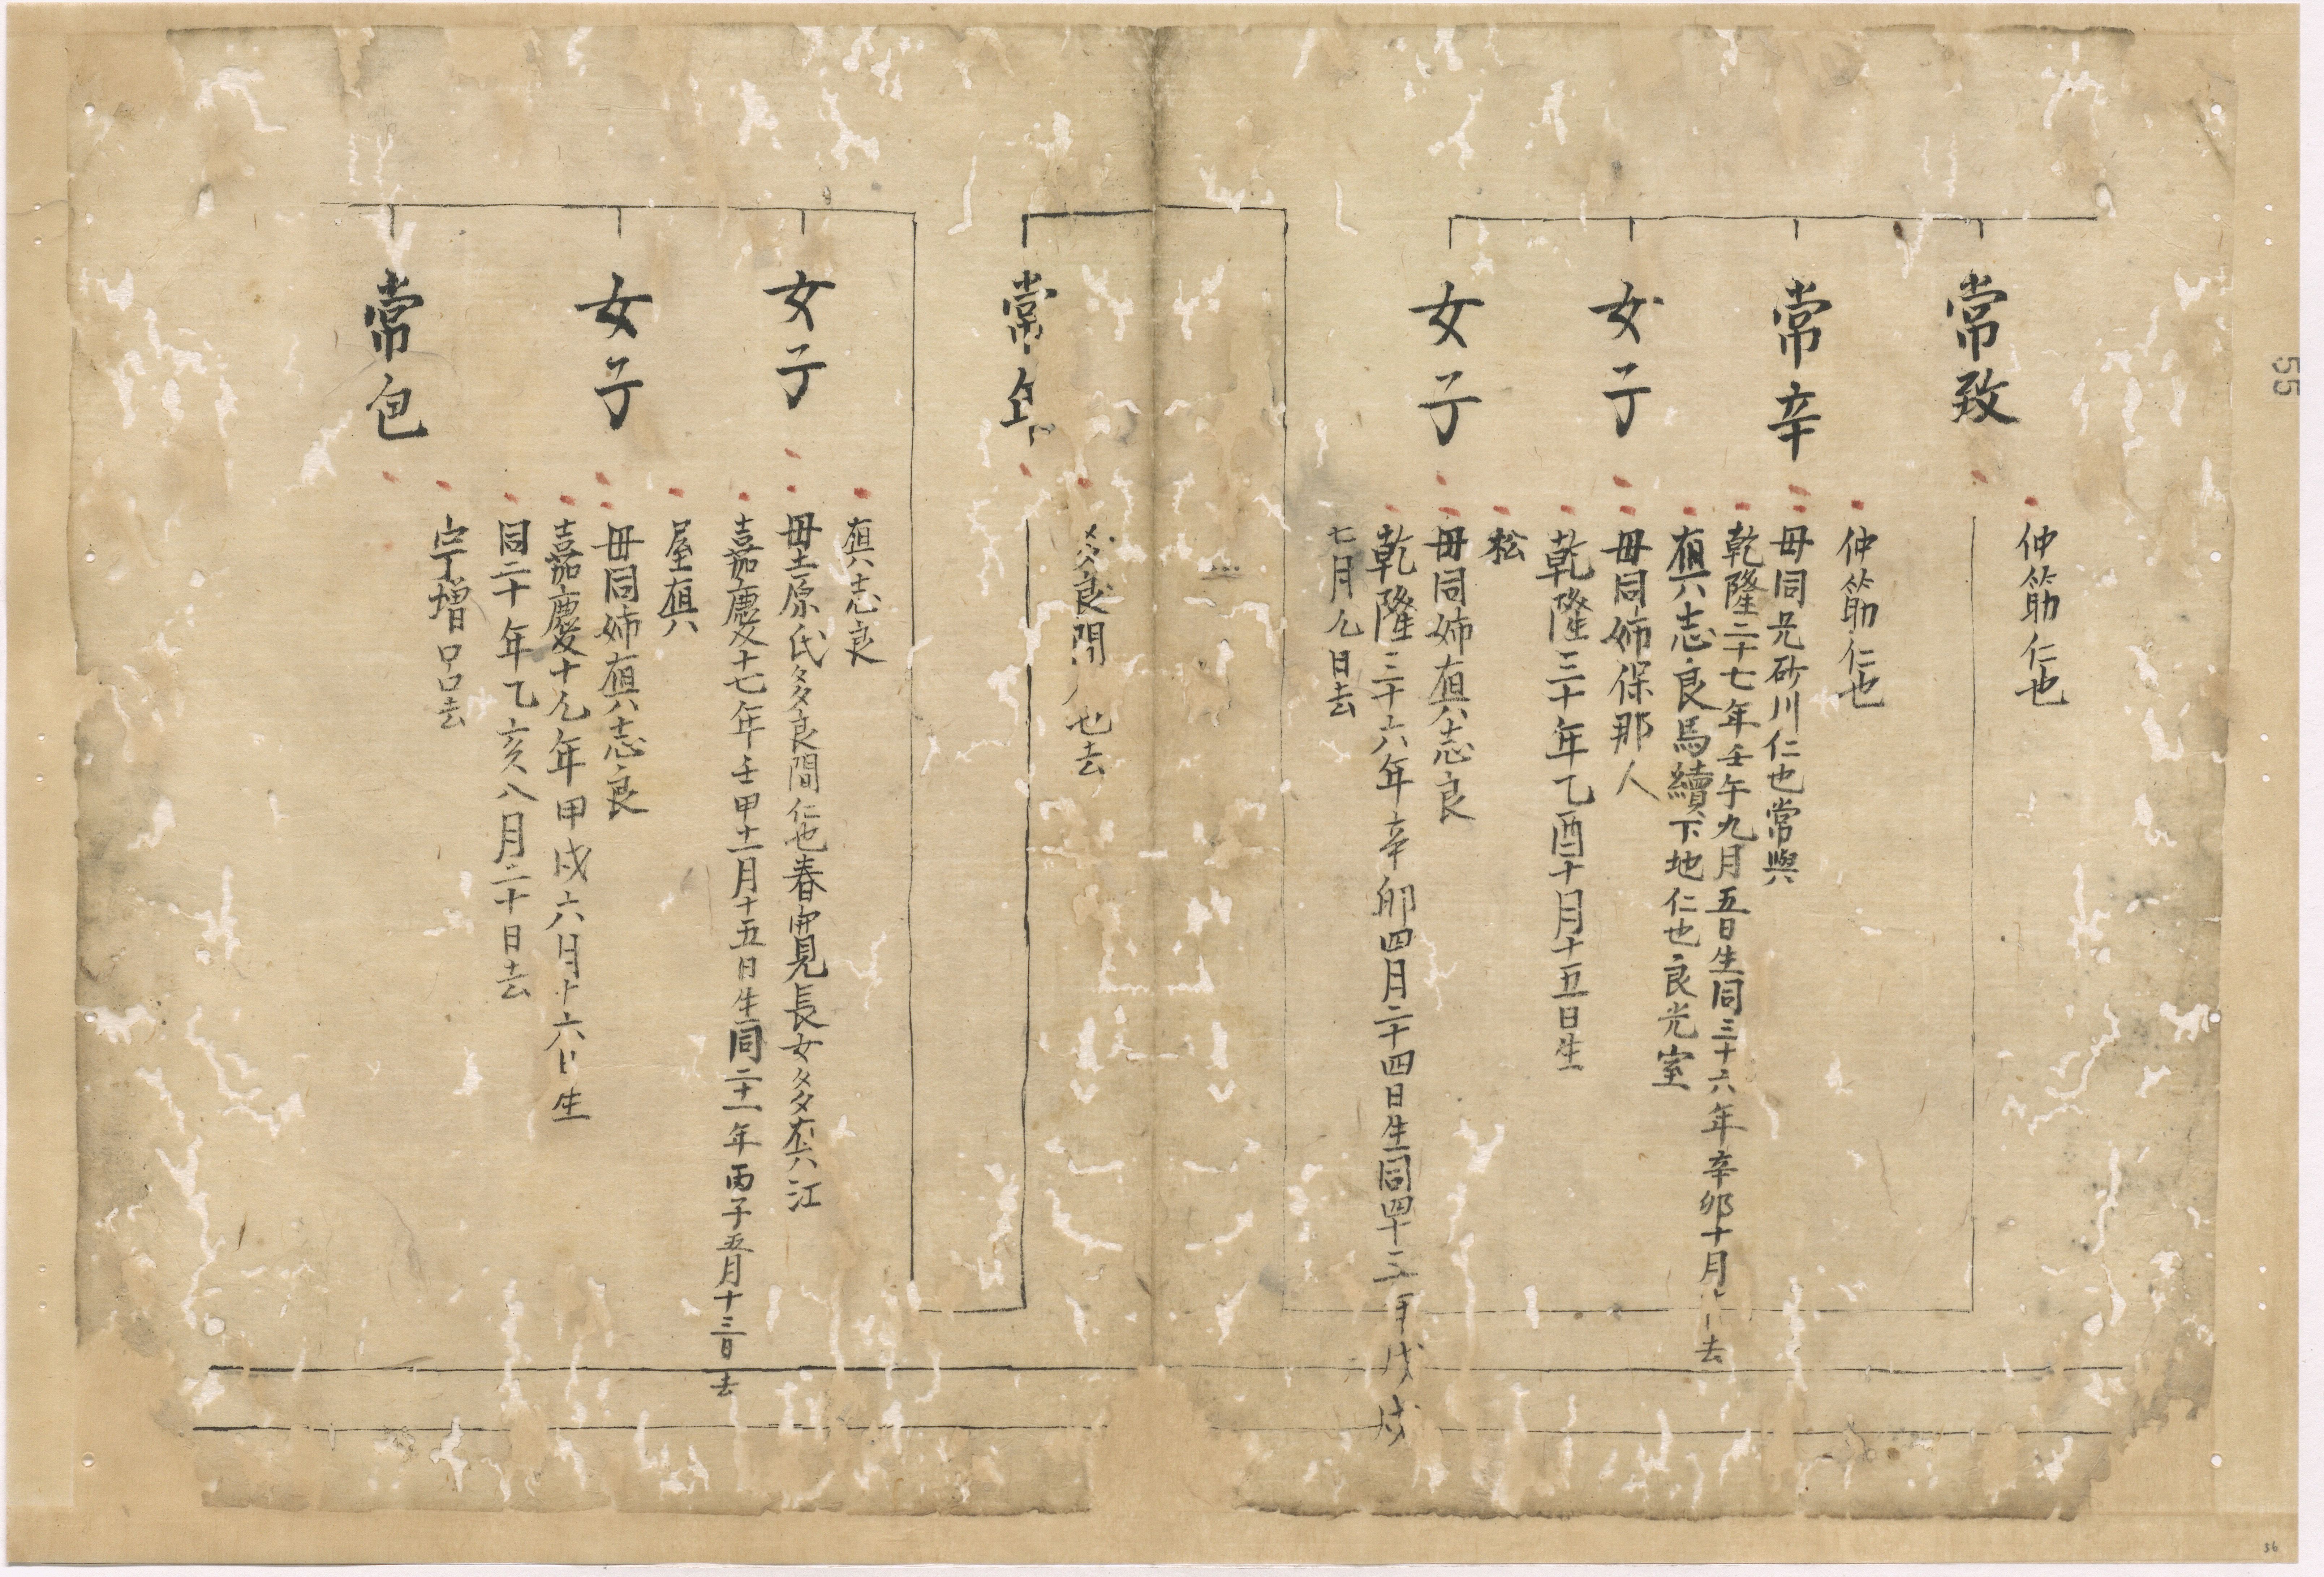 常致
仲筋仁也
常辛
仲筋仁也
女子
母同兄砂川仁也常與
乾隆二十七年壬午九月五日生同三十六年辛卯十月 去
真志良馬續下地仁也良光室
女子
母同姉保那人
乾隆三十年乙酉十月十五日生
松
母同姉真志良
乾隆三十六年辛卯四月二十四日生同四十三年戊戌
七月九日去
多良間 也去
常
女子
真志良
母土原氏多良間仁也春寛見長女多真江
嘉慶十七年壬申十一月十五日生同二十一年丙子五月十三日去
女子
屋真
母同姉真志良
嘉慶十九年甲戌六月十六日生
同二十年乙亥八月二十日去
常包
宇増 去
55
56